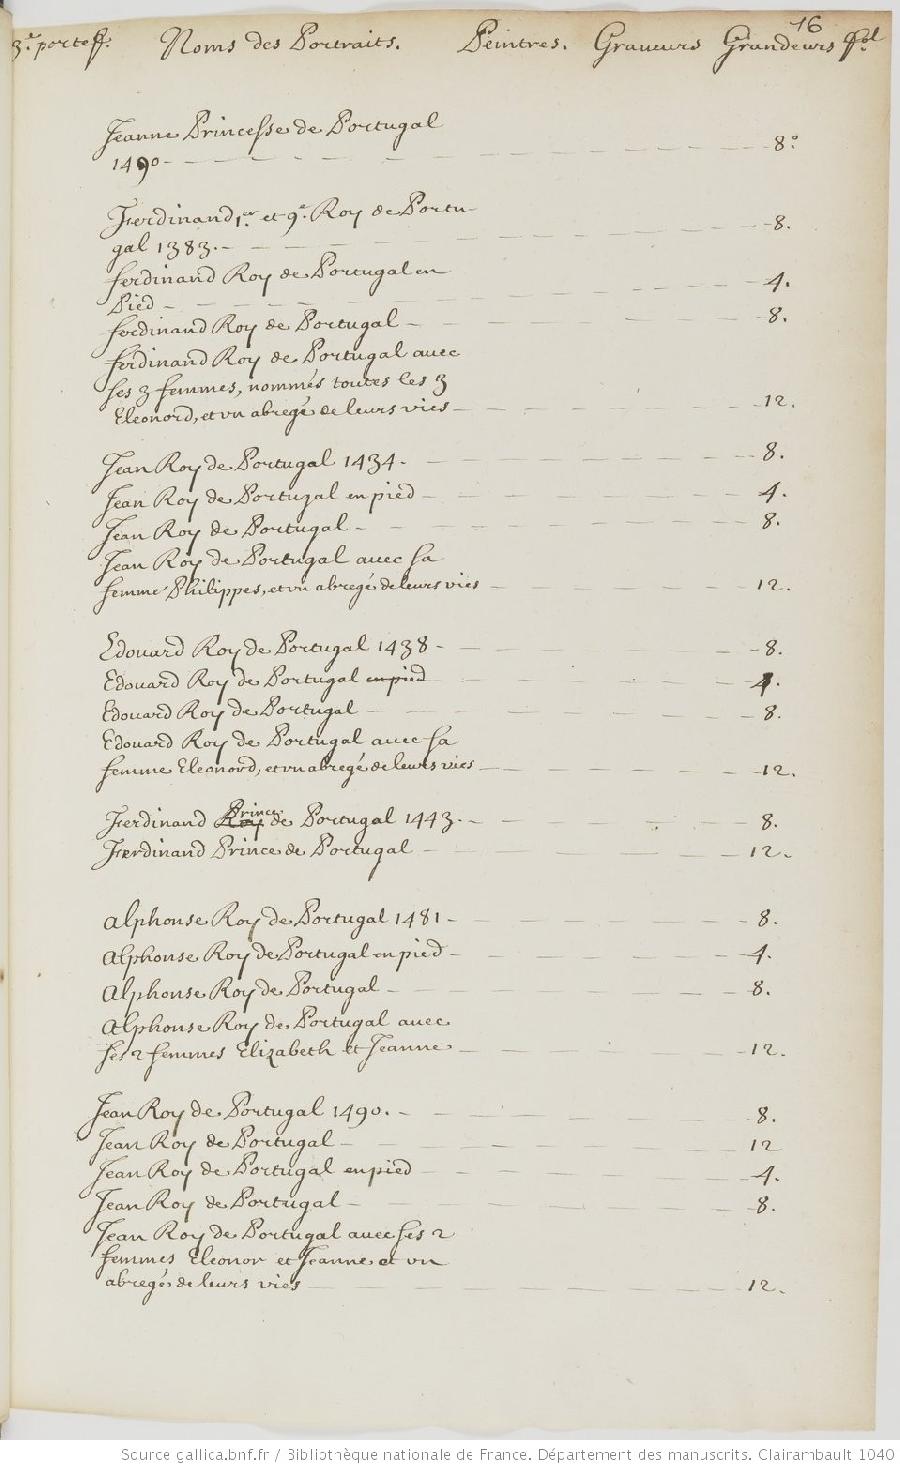 16
3.e portef. Noms des Portraits. Peintres. Graveurs Grandeurs fol
Jeanne Princesse de Portugal
1490 - 8.o
Ferdinand 1.er et 9.e Roy de Portu-
gal 1383. - 8.
ferdinand Roy de Portugal en
Pied - 4.
ferdinand Roy de Portugal - 8.
ferdinand Roy de Portugal avec
ses 3 femmes, nommés toutes les 3
Eleonord, et vn abregé de leurs vies - 12.
Jean Roy de Portugal 1434. - 8.
Jean Roy de Portugal en pied - 4.
Jean Roy de Portugal - 8.
Jean Roy de Portugal avec sa
femme Philippes, et vn abregé de leurs vies - 12.
Edouard Roy de Portugal 1438 - 8.
Edouard Roy de Portugal en pied - 4.
Edouard Roy de Portugal - 8.
Edouard Roy de Portugal avec sa
femme Eleonord, et vn abregé de leurs vies - 12.
Ferdinand Roy Prince de Portugal 1443. - 8.
Ferdinand Prince de Portugal - 12.
Alphonse Roy de Portugal 1481 - 8.
Alphonse Roy de Portugal en pied - 4.
Alphonse Roy de Portugal - 8.
Alphonse Roy de Portugal avec
ses 2 femmes Elizabeth et Jeanne - 12.
Jean Roy de Portugal 1490. - 8.
Jean Roy de Portugal - 12
Jean Roy de Portugal en pied - 4.
Jean Roy de Portugal - 8.
Jean Roy de Portugal avec ses 2
femmes Eleonor et Jeanne et vn
abregé de leurs vies - 12.
Source gallica.bnf.fr / Bibliothèque nationale de France. Département des manuscrits. Clairambault 1040